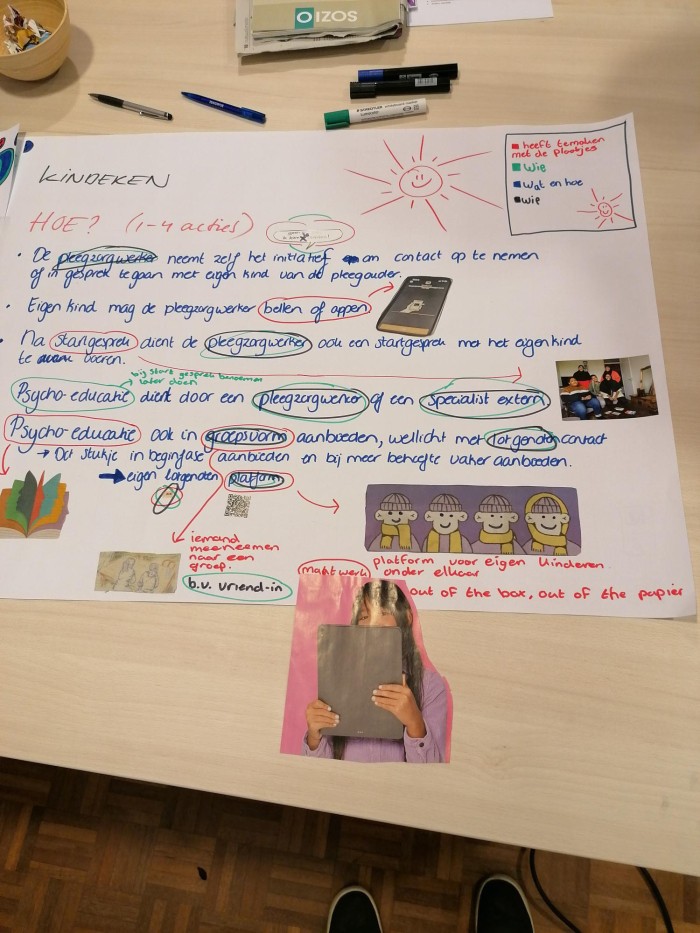 OIZOS
KINDEKEN
heeft temaken
met de plaatjes
Wie
wat en hoe
wie
HOE? (1-4 acties)
• De pleegzorgwerker neemt zelf het initiatief om contact op te nemen
of in gesprek tegaan met eigen kind van de pleegouder.
• Eigen kind mag de pleegzorgwerker bellen of appen
• Na startgesprek dient de pleegzorgwerker ook een startgesprek met het eigen kind
te voeren.
bij start gesprek benoemen
later doen
Psycho-educatie dient door een pleegzorgwerker of een specialist extern
Psycho-educatie ook in groepsvorm aanbieden, wellicht met lotgenoten contact
→ Dit stukje in beginfase aanbieden en bij meer behoefte vaker aanbieden.
→ eigen lotgenoten platform
iemand
meenemen
naar een
groep.
b.v. vriend-in
platform voor eigen kinderen
onder elkaar
maatwerk
out of the box, out of the papier